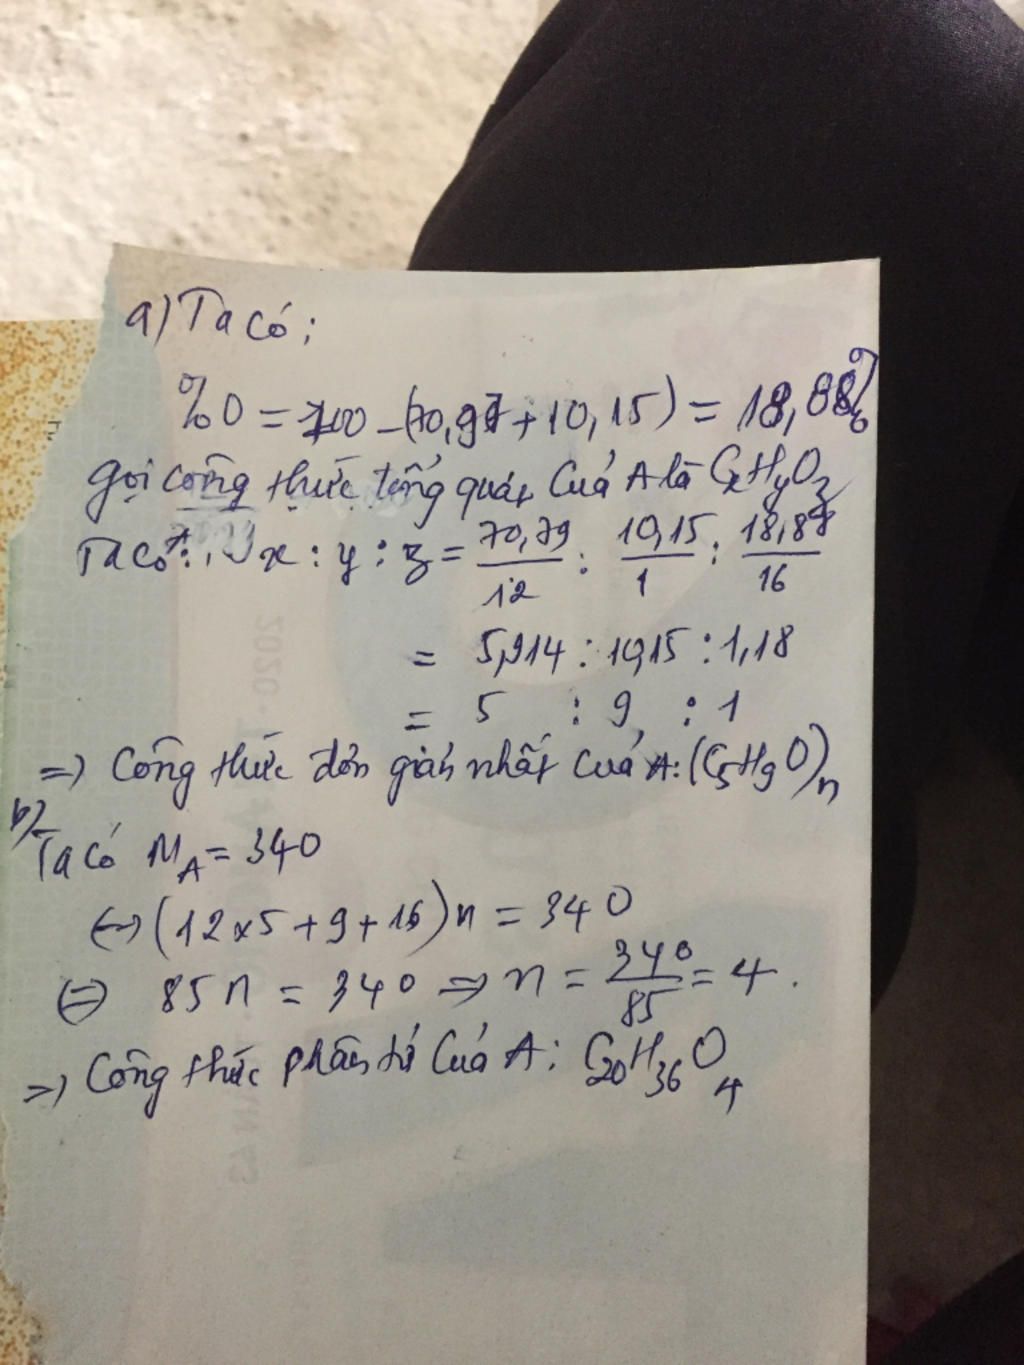 a) Ta có:
%O = 100 - (70,97 + 10,15) = 18,88%
Gọi công thức tổng quát của A là CxHyOz
Ta có: x : y : z = 70,79/12 : 10,15/1 : 18,88/16
= 5,914 : 10,15 : 1,18
= 5 : 9 : 1
=> Công thức đơn giản nhất của A: (C5H9O)n
b)
Ta có MA = 340
<=> (12x5 + 9 + 16)n = 340
<=> 85n = 340 => n = 340/85 = 4.
=> Công thức phân tử của A: C20H36O4